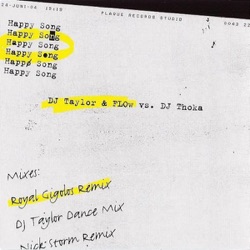 24-JUNI-06 15:15 PLAGUE RECORDS STUDIO 0042 22
Happy Song
Happy Song
Happy Song
Happy Song
Happy Song
Happy Song
DJ Taylor & FLOw vs. DJ Thoka
Mixes:
Royal Gigolos Remix
DJ Taylor Dance Mix
Nick Storm Remix